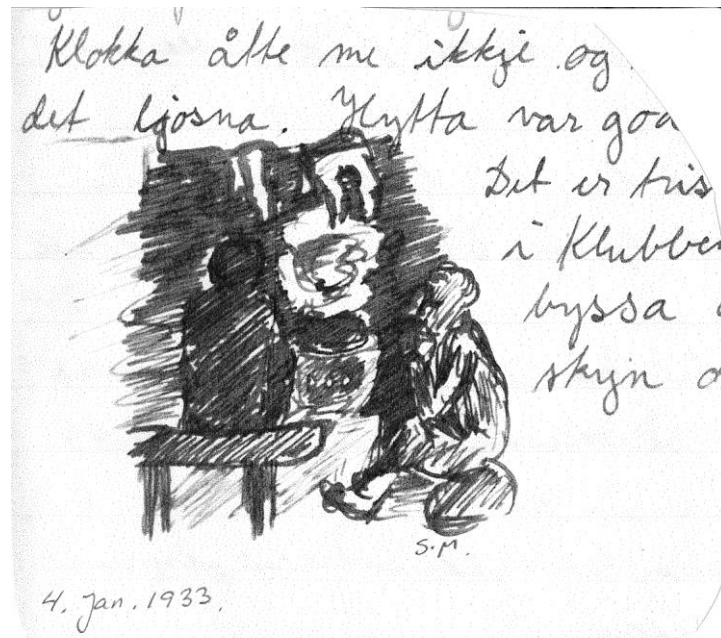 Klokka åtte me ikkje og.
det ljosna. Hytta var god
Det er tris
i Klubben
byssa
skyn o
S.M.
4. Jan. 1933.